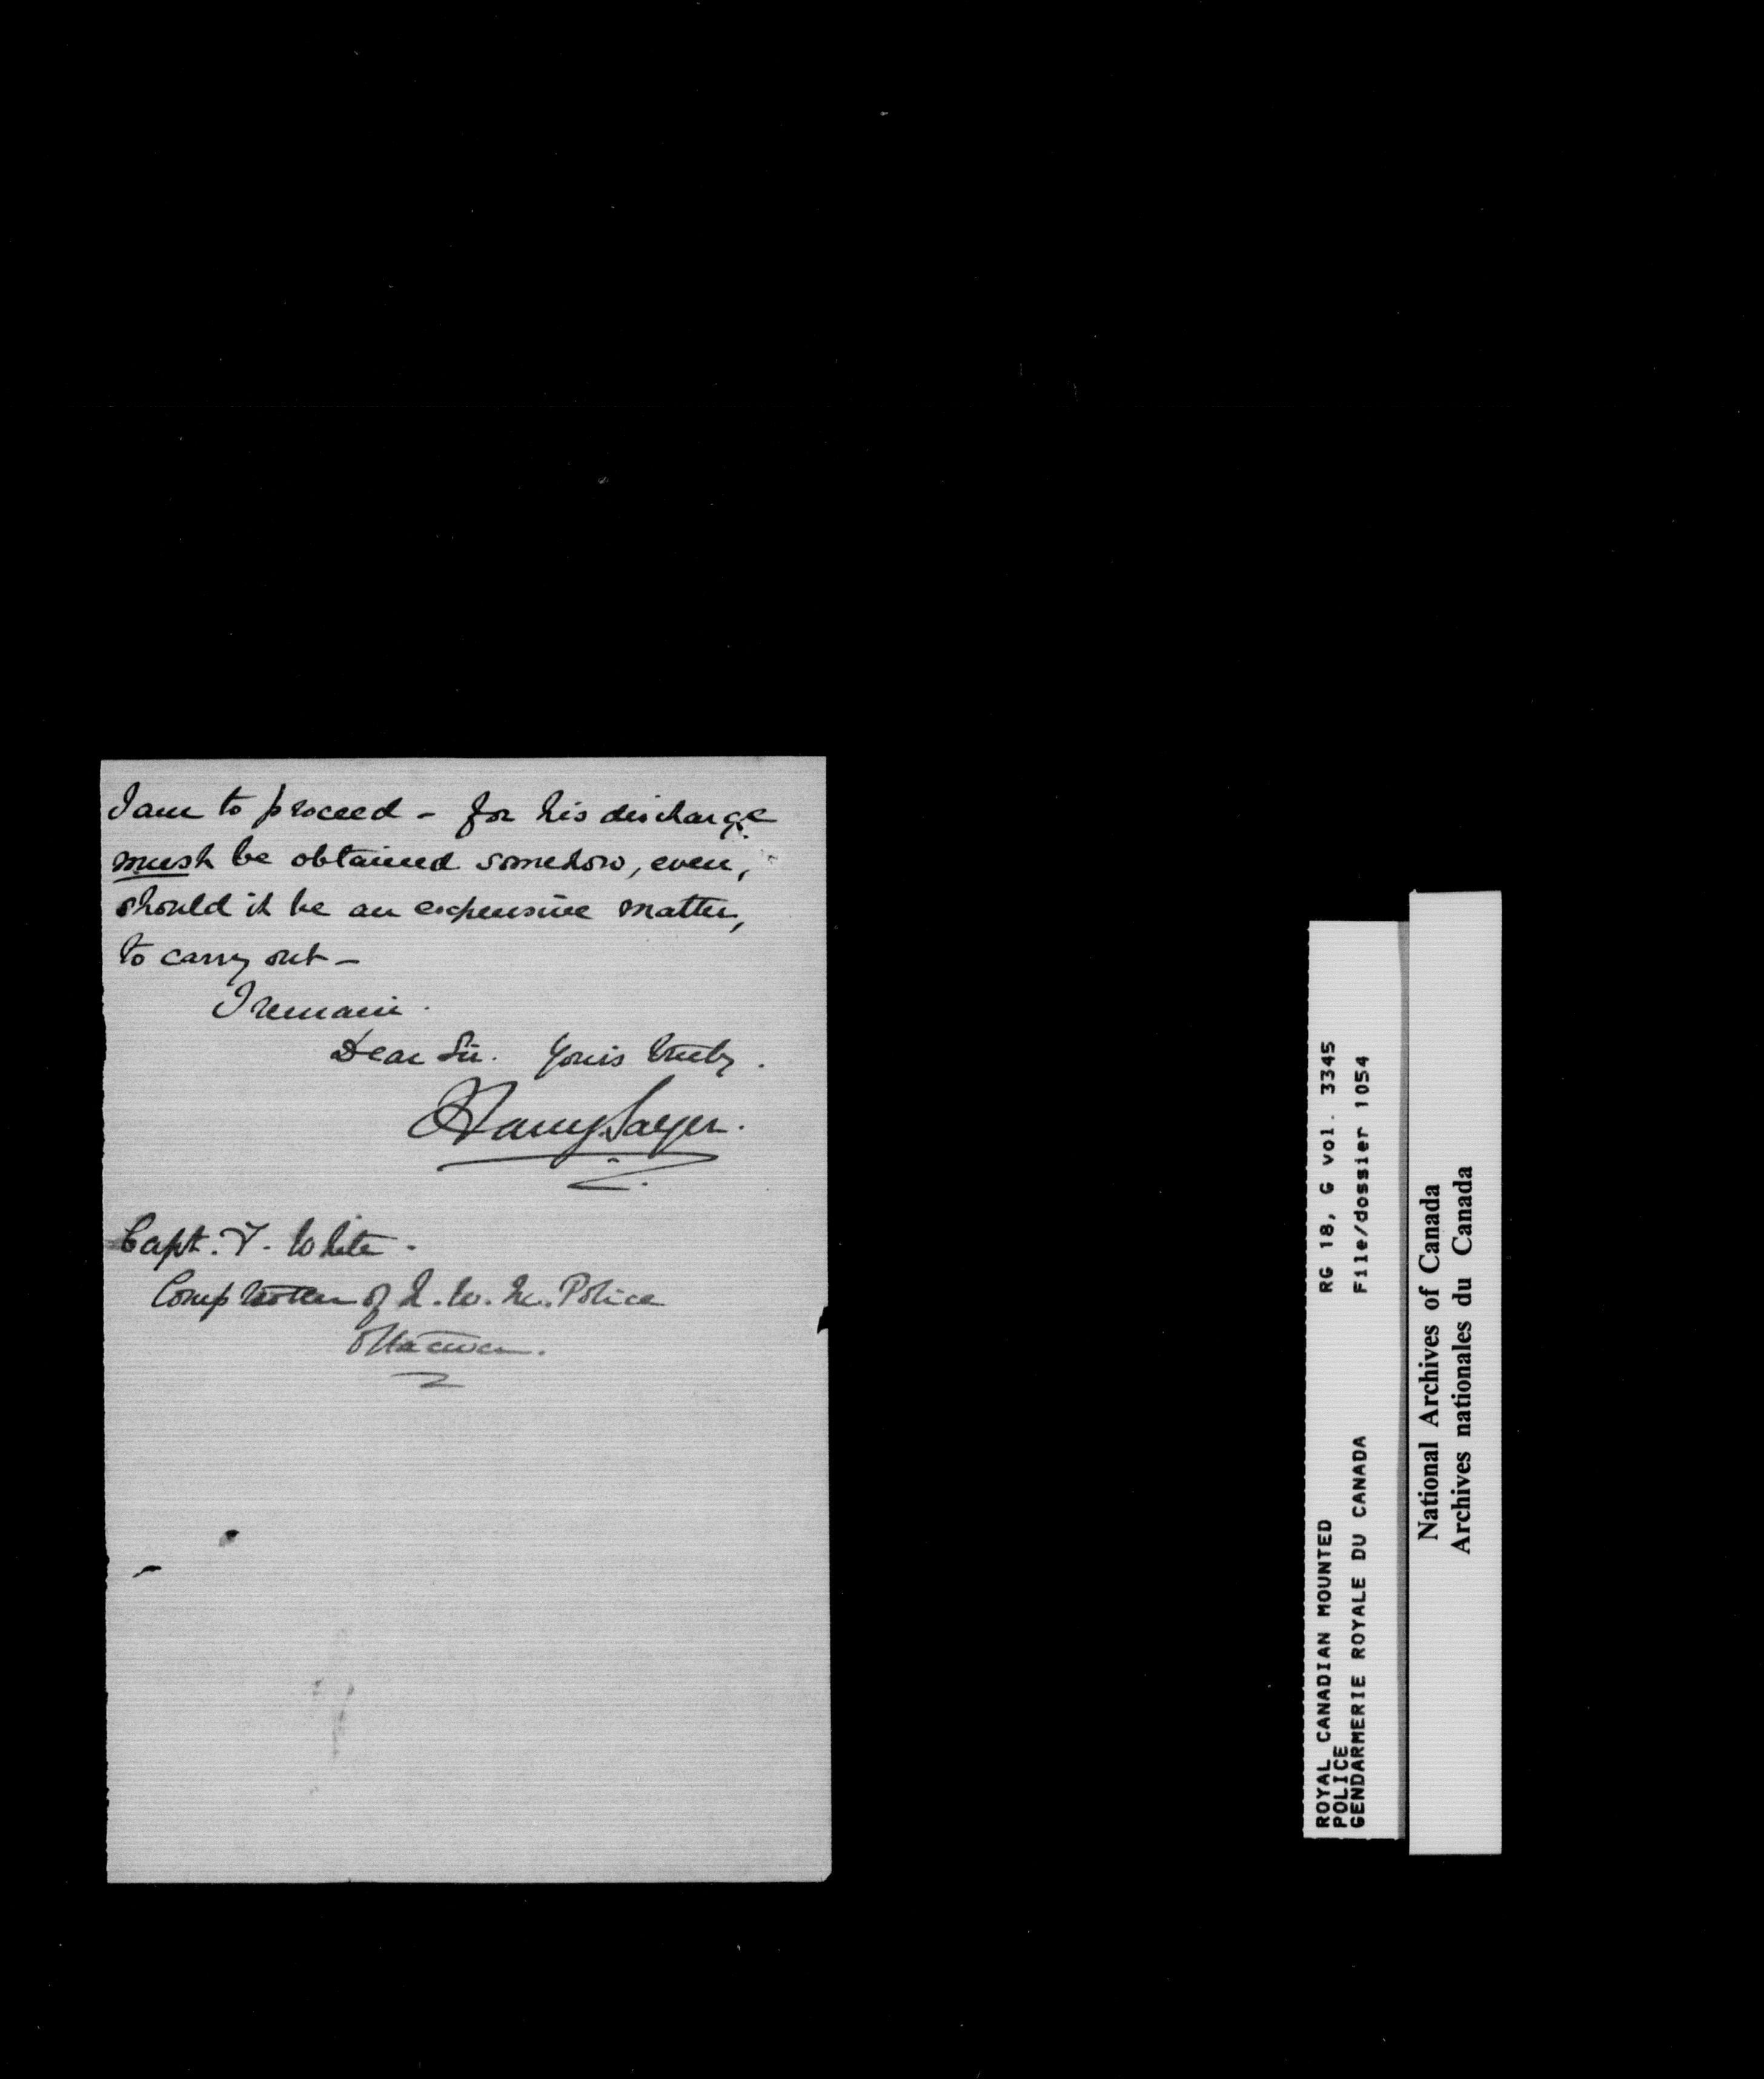 I am to proceed - for his discharge
must be obtained somehow, even,
should it be an expensive matter,
to carry out -
I remain.
Dear Sir. Yours truly.
Harry Sayer.
Capt. F. White.
Comptroller of N. W. M. Police
Ottawa.
ROYAL CANADIAN MOUNTED RG 18, G vol. 3345
POLICE
GENDARMERIE ROYALE DU CANADA File/dossier 1054
National Archives of Canada
Archives nationales du Canada